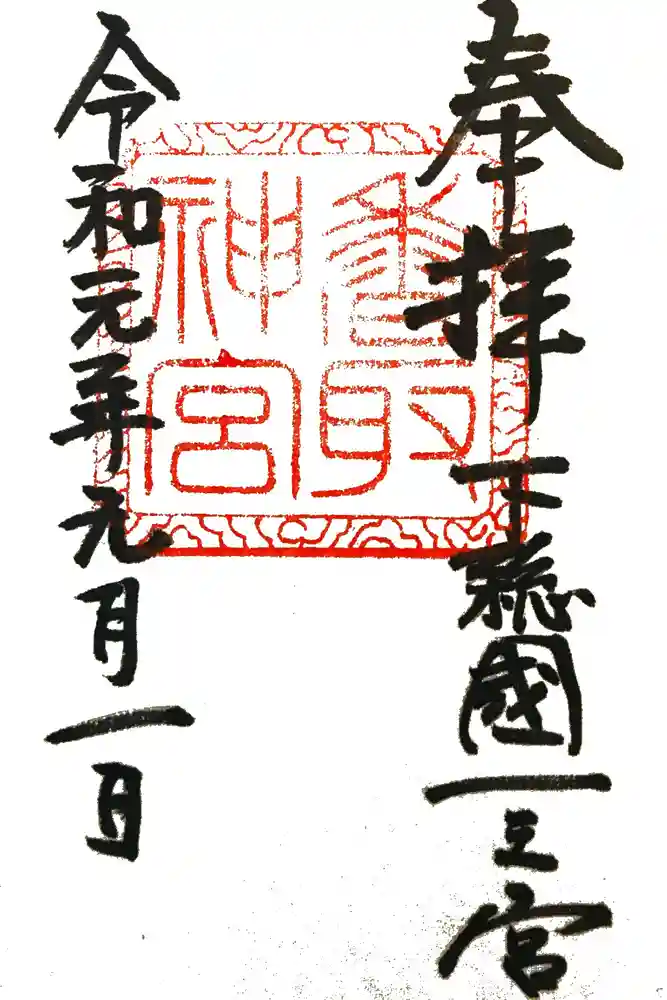 奉拝
下総國一之宮
香取
神宮
令和元年九月一日